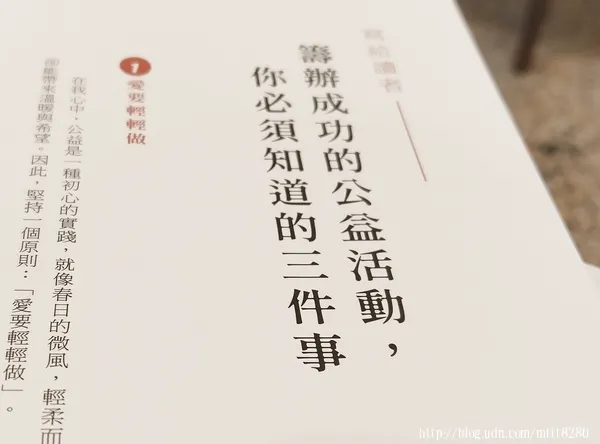 寫給讀者
籌辦成功的公益活動,
你必須知道的三件事
1 愛要輕輕做
在我心中,公益是一種初心的實踐,就像春日的微風,輕柔而
卻能帶來溫暖與希望。因此,堅持一個原則:「愛要輕輕做」。
http://blog.udn.com/mtit8280